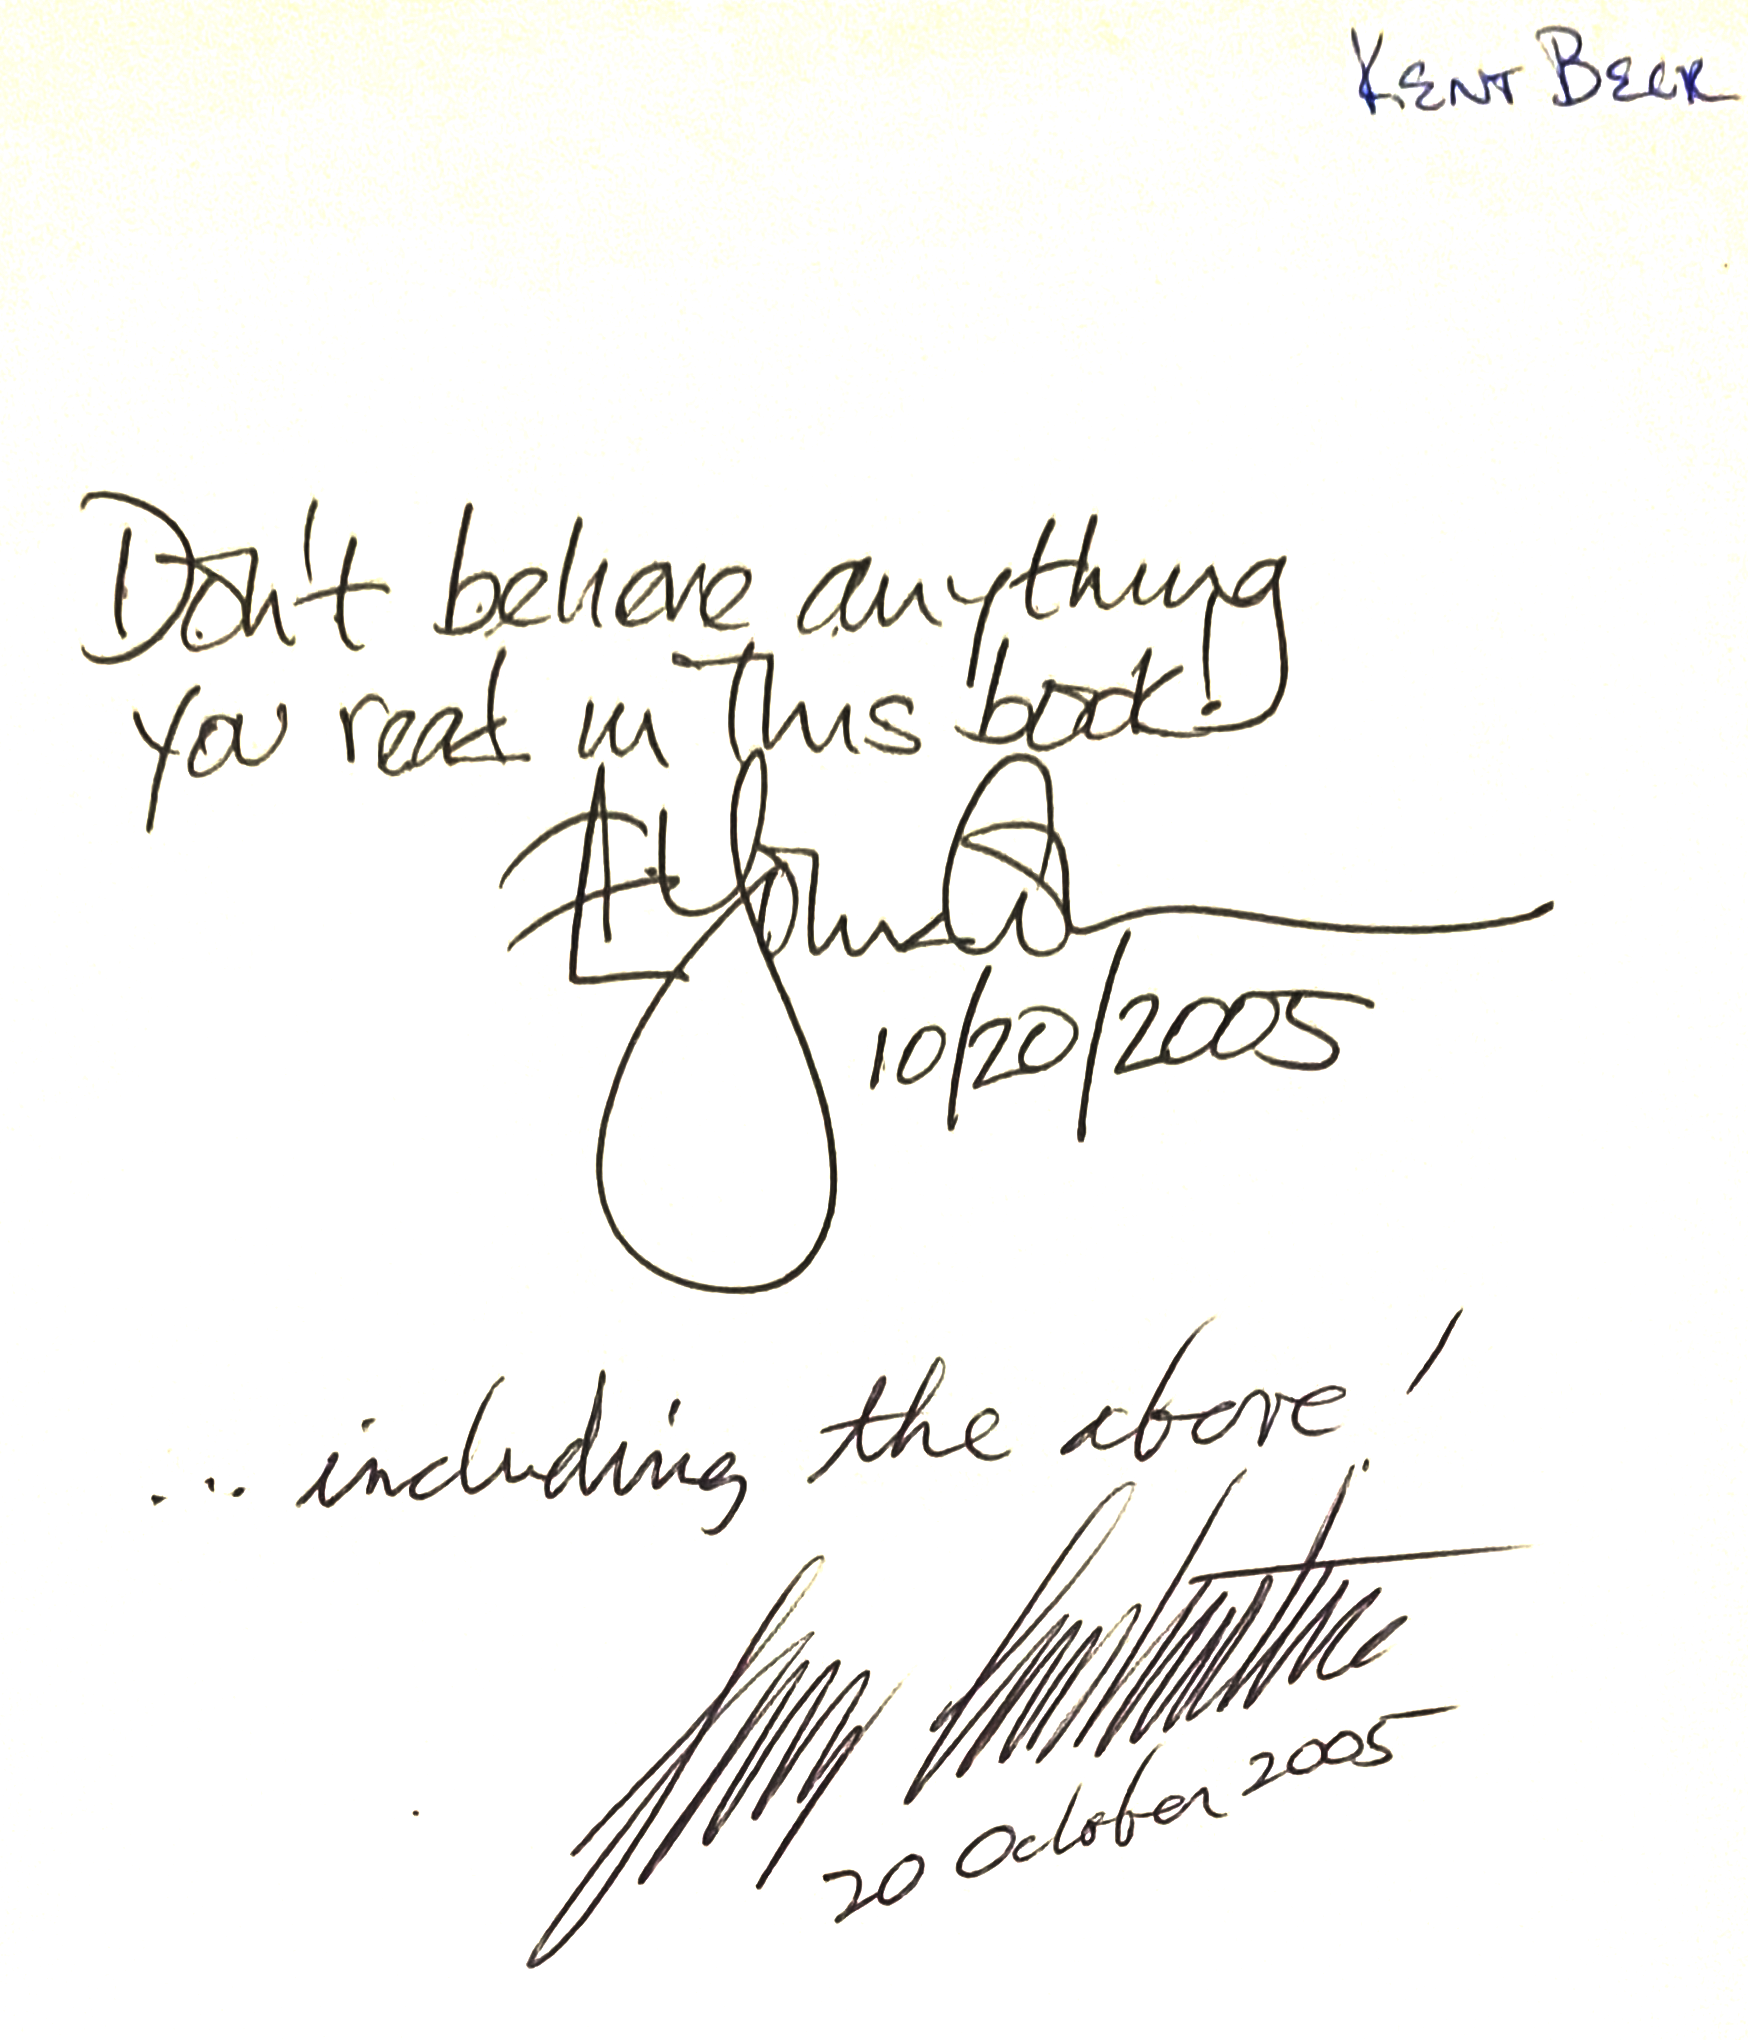 KENT BECK
Don't believe anything
you read in This book.
10/20/2005
... including the above!
20 October 2005